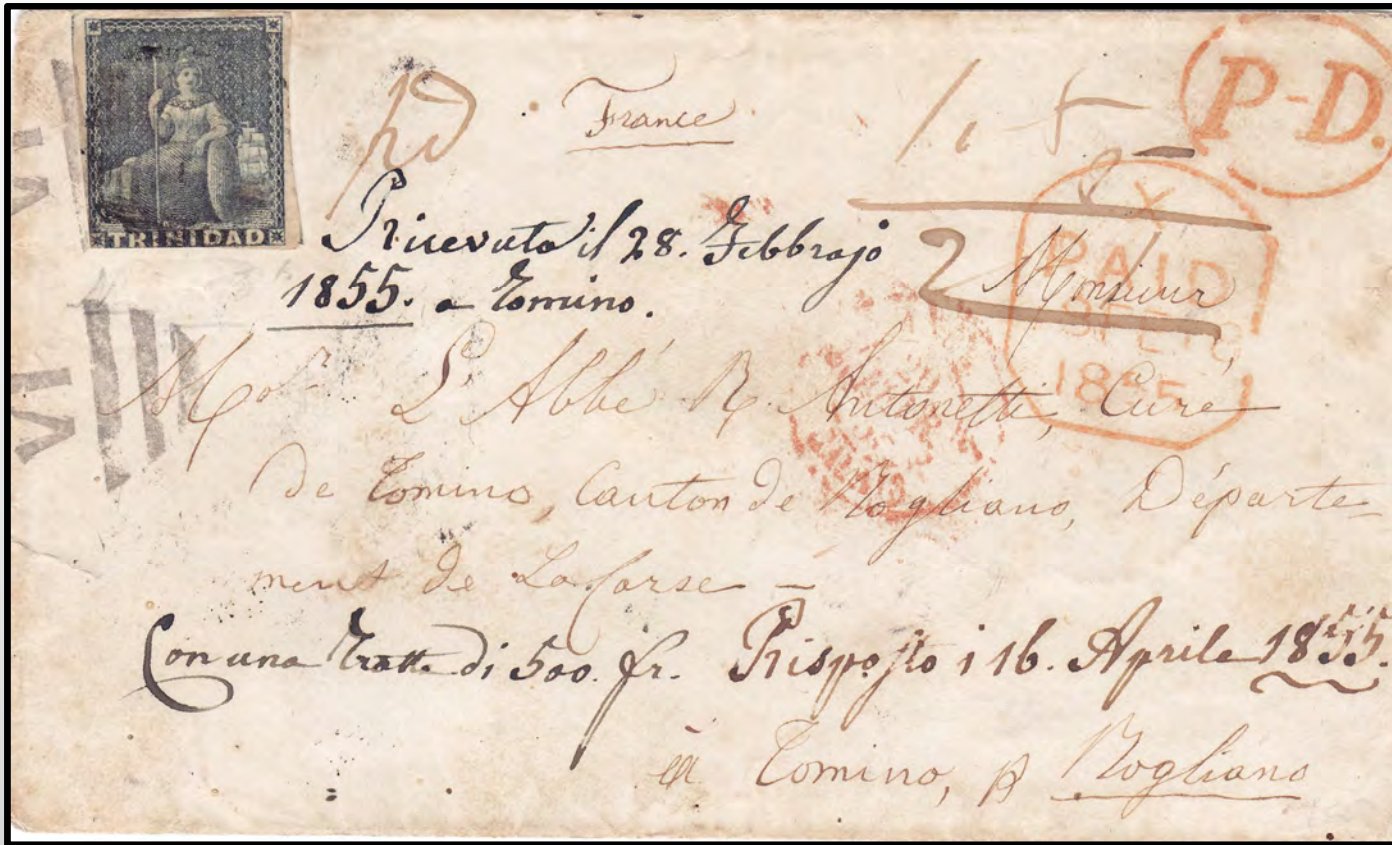 TRINIDAD
pd
France
P-D.
Ricevuta il 28. Febbrajo
1855. a Tomino.
Y
PAID
1855
2
Monsieur
L'Abbé R. Antonetti, Curé
de Tomino, Canton de Rogliano, Départe-
ment de La Corse -
Con una Tratta di 500. fr. Risposto i 16. Aprile 1855.
a Tomino, p Rogliano